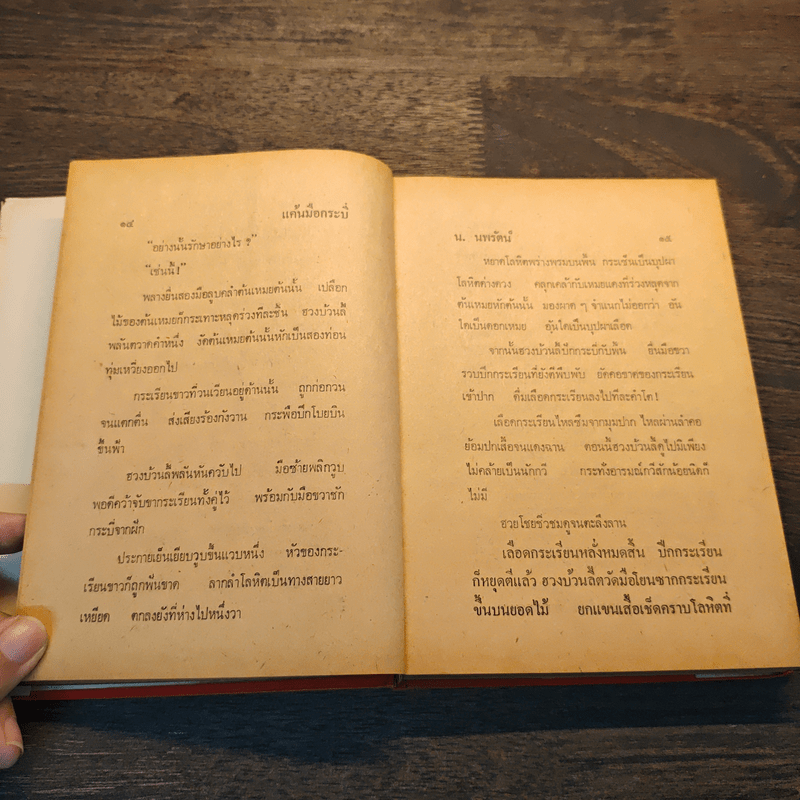 ๑๔
แค้นมือกระบี่
"อย่างนั้นรักษาอย่างไร ?"
"เช่นนี้!"
พลางยื่นสองมือลูบคลำต้นเหมยต้นนั้น เปลือก
ไม้ของต้นเหมยก็กระเทาะหลุดร่วงทีละชิ้น ฮวงบ้วนลี้
พลันตวาดคำหนึ่ง งัดต้นเหมยต้นนั้นหักเป็นสองท่อน
ทุ่มเหวี่ยงออกไป
กระเรียนขาวที่วนเวียนอยู่ด้านนั้น ถูกก่อกวน
จนแตกตื่น ส่งเสียงร้องกังวาน กระพือปีกโบยบิน
ขึ้นฟ้า
ฮวงบ้วนลี้พลันหันควับไป มือซ้ายพลิกวูบ
พอดีคว้าจับขากระเรียนทั้งคู่ไว้ พร้อมกับมือขวาชัก
กระบี่จากฝัก
ประกายเย็นเยียบวูบขึ้นแวบหนึ่ง หัวของกระ-
เรียนขาวก็ถูกฟันขาด ลากลำโลหิตเป็นทางสายยาว
เหยียด ตกลงยังที่ห่างไปหนึ่งวา
น. นพรัตน์
๑๕
หยาดโลหิตพร่างพรมบนพื้น กระเซ็นเป็นบุปผา
โลหิตด่างดวง คลุกเคล้ากับเหมยแดงที่ร่วงหลุดจาก
ต้นเหมยหักต้นนั้น มองผาด ๆ จำแนกไม่ออกว่า อัน
ใดเป็นดอกเหมย อันใดเป็นบุปผาเลือด
จากนั้นฮวงบ้วนลี้ปักกระบี่กับพื้น ยื่นมือขวา
รวบปีกกระเรียนที่ยังตีพึบพับ ยัดคอขาดของกระเรียน
เข้าปาก ดื่มเลือดกระเรียนลงไปทีละคำโต!
เลือดกระเรียนไหลซึมจากมุมปาก ไหลผ่านลำคอ
ย้อมปกเสื้อจนแดงฉาน ตอนนี้ฮวงบ้วนลี้ดูไปมิเพียง
ไม่คล้ายเป็นนักกวี กระทั่งอารมณ์กวีสักน้อยนิดก็
ไม่มี
ฮวยโซยชิวชมดูจนตะลึงลาน
เลือดกระเรียนหลั่งหมดสิ้น ปีกกระเรียน
ก็หยุดตีแล้ว ฮวงบ้วนลี้ตวัดมือโยนซากกระเรียน
ขึ้นบนยอดไม้ ยกแขนเสื้อเช็ดคราบโลหิตที่